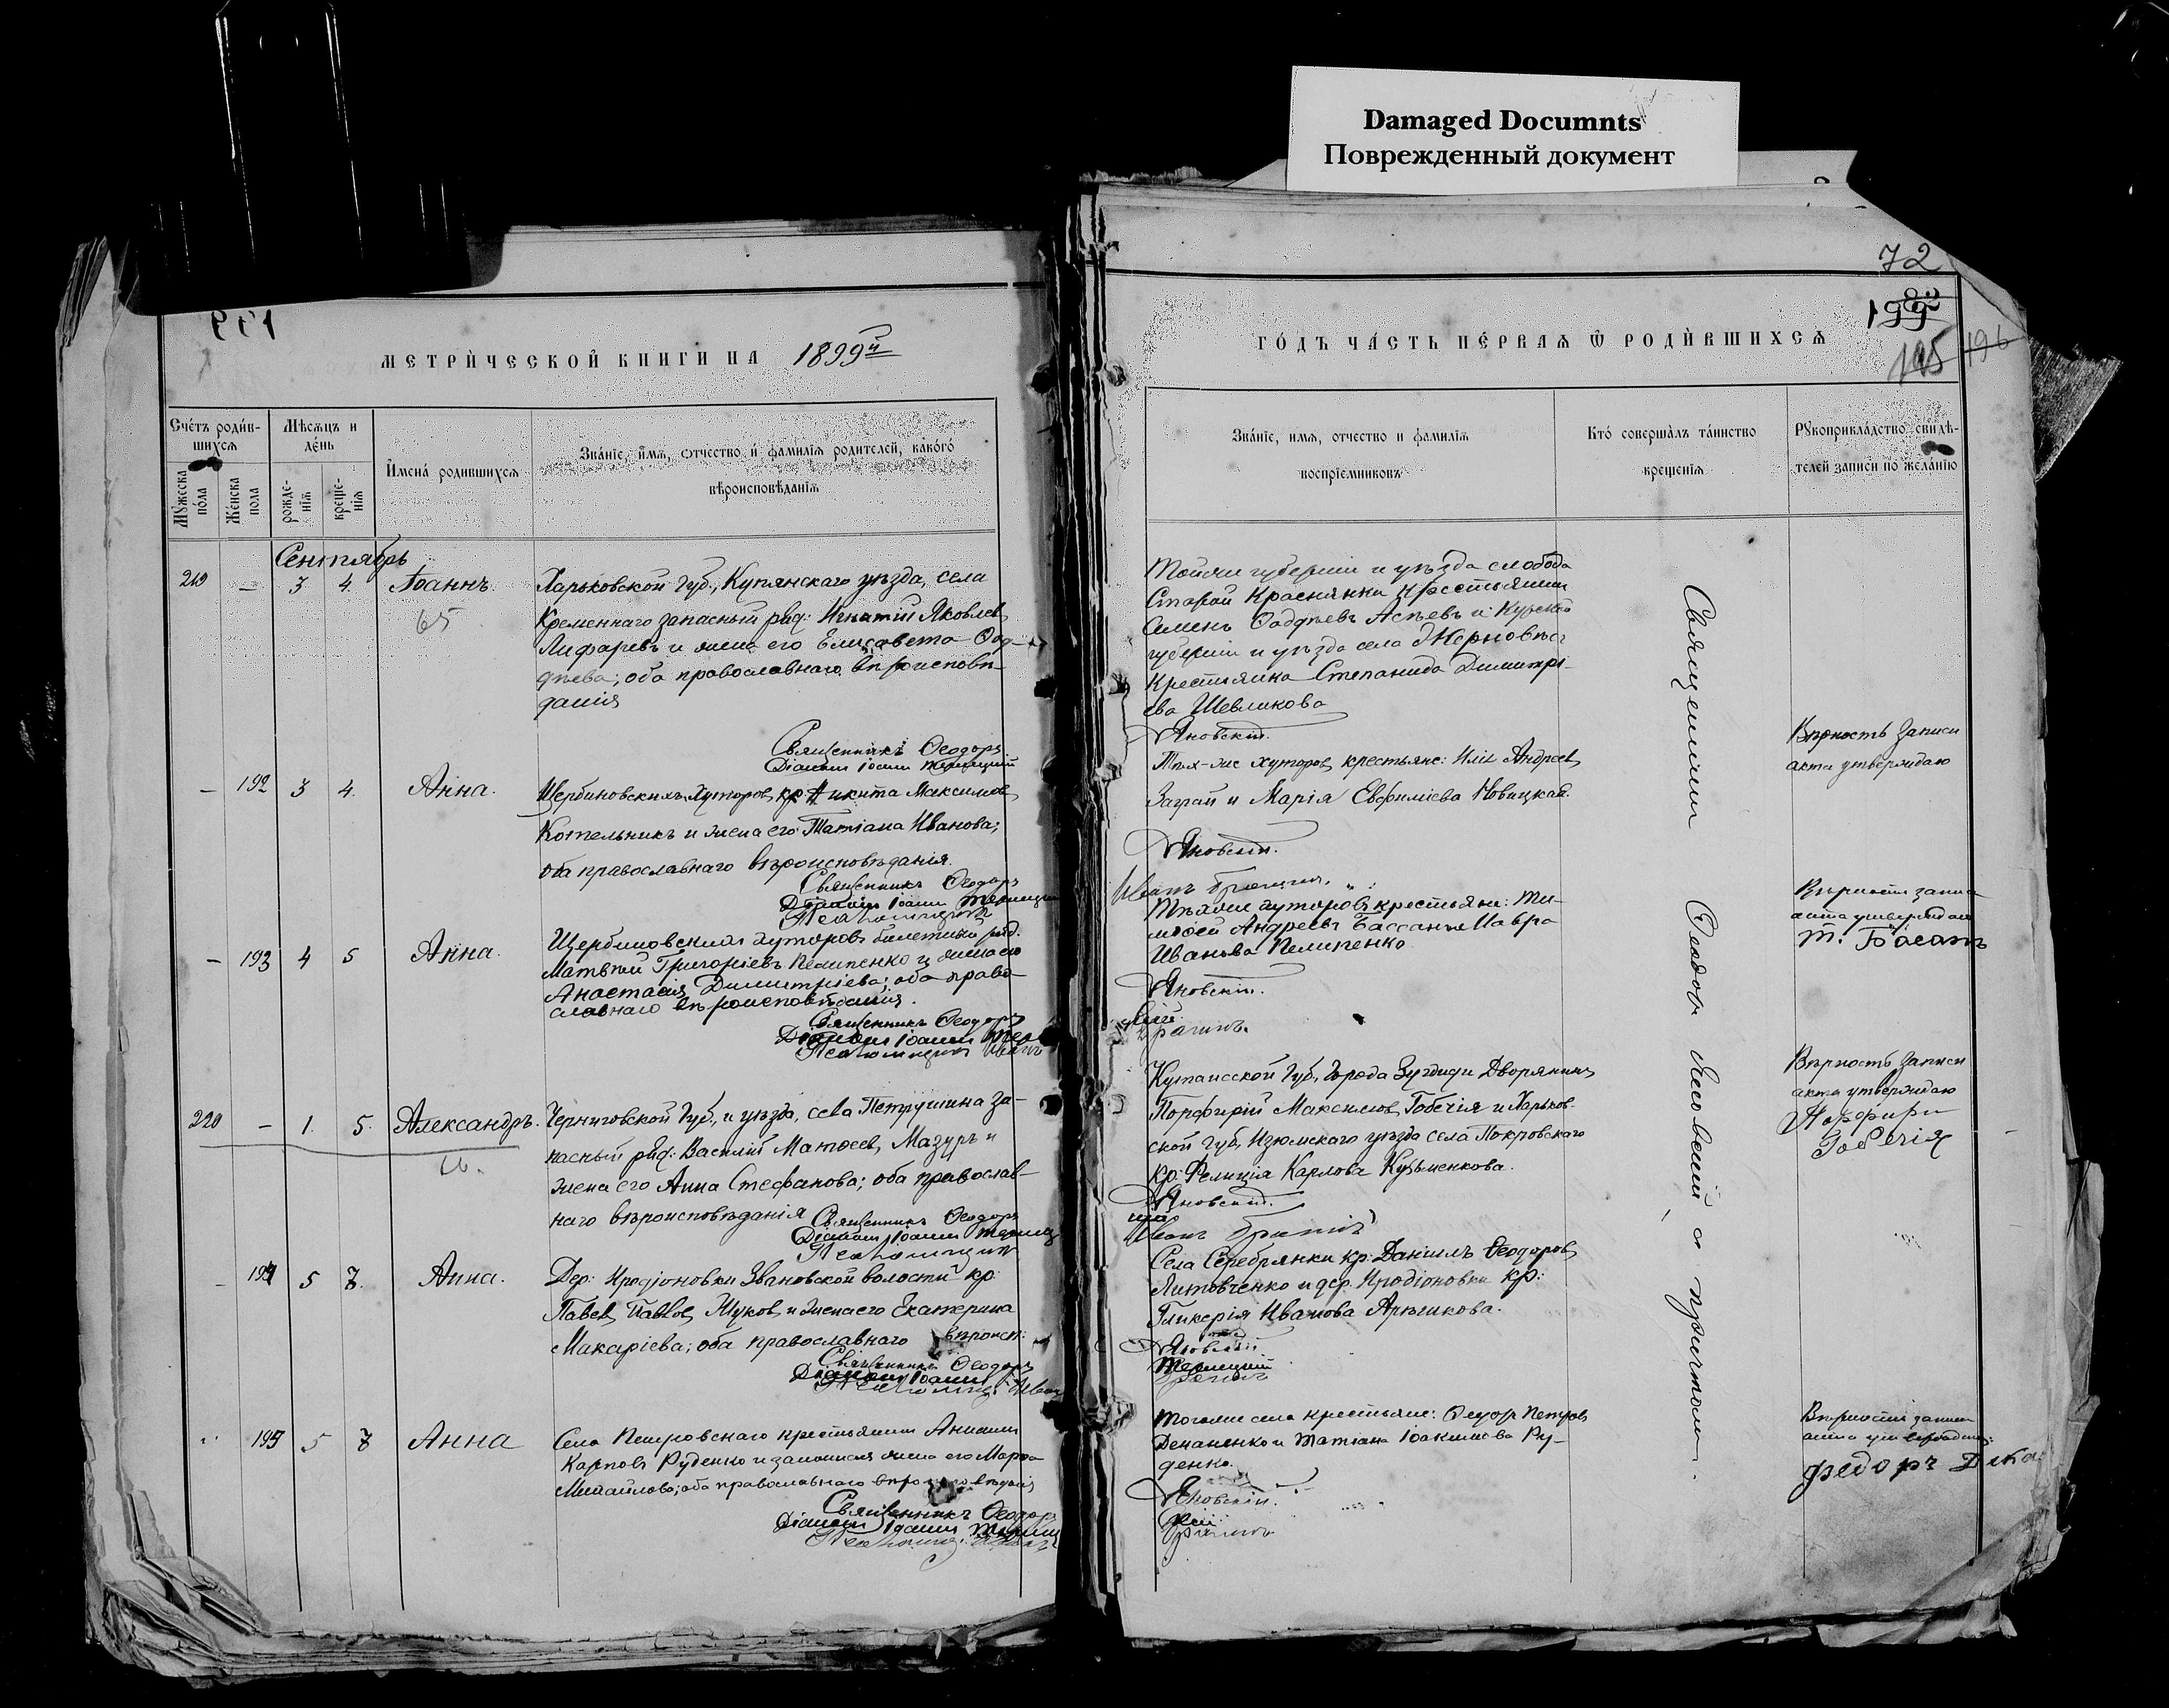 Damaged Documnts
Поврежденный документ
72
195
196
МЕТРИЧЕСКОЙ КНИГИ НА 1899й
ГОДЪ ЧАСТЬ ПЕРВАЯ Ѡ РОДИВШИХСЯ
Счетъ родив-
шихся
Мужеска пола
Женска пола
Мѣсяцъ и
день
рожде-
нія
креще-
нія
Имена родившихся
Званіе, имя, отчество и фамилія родителей, какого
вѣроисповѣданія
Званіе, имя, отчество и фамилія
воспріемниковъ
Кто совершалъ таинство
крещенія
Рукоприкладство свидѣ-
телей записи по желанію
Сентябрь
219 — 3 4. Іоаннъ.
65
Харьковской Губ., Купянскаго уѣзда, села
Кременнаго запасный ряд: Игнатій Яковлев
Лифаревъ и жена его Елисавета Фад-
дѣева; оба православнаго вѣроисповѣ-
данія
Священникъ Ѳеодоръ
Діаконъ Іоаннъ
Тойже губерніи и уѣзда слобода
Старой Краснянки крестьянинъ
Симеонъ Фаддѣевъ и Курской
губерніи и уѣзда села
крестьянка Степанида Димитрі-
ева Шевлякова
Яновскій.
— 192 3 4. Анна.
Щербиновскихъ Хуторов, кр. Никита Максимов
Котельникъ и жена его Татіана Иванова;
оба православнаго вѣроисповѣданія.
Священникъ Ѳеодоръ
Діаконъ Іоаннъ
Псаломщикъ
Тѣх-же хуторов, крестьяне: Илія Андреев
и Марія Евфиміева Новицкая.
Яновскій.
Иванъ
Вѣрность записи
акта утверждаю
— 193 4 5 Анна.
Щербиновскихъ хуторовъ билетный ряд.
Матвѣй Григоріевъ Пелипенко и жена его
Анастасія Димитріева; оба право-
славнаго вѣроисповѣданія.
Священникъ Ѳеодоръ
Діаконъ Іоаннъ
Псаломщикъ Иванъ
Тѣхже хуторовъ крестьяне: Ти-
моѳей Андреевъ Бассанъ и Мавра
Иванова Пелипенко
Яновскій.
Вѣрность записи
акта утверждаю
Т. Басанъ
220 — 1. 5. Александръ.
Черниговской Губ., и уѣзда, села Петрушина за-
пасный ряд: Василій Матѳеев, Мазуръ и
жена его Анна Стефанова; оба православ-
наго вѣроисповѣданія
Священникъ Ѳеодоръ
Діаконъ Іоаннъ
Псаломщикъ
Кутаисской Губ. города Зугдиди Дворянинъ
Порфирій Максимов, Гобечія и Харьков-
ской губ, Изюмскаго уѣзда села Покровскаго
кр: Фелиція Карлова Кузьменкова.
Яновскій.
Иванъ
Вѣрность записи
акта утверждаю
Порфири
Гобечія
— 194 5 7. Анна.
Дер: Иродіоновки Звановской волости кр:
Павел, Павлов, Жуков, и жена его Екатерина
Макаріева; оба православнаго вѣроисп:
Священникъ Ѳеодоръ
Діаконъ Іоаннъ
Села Серебрянки кр: Даніилъ Ѳеодоров,
Литовченко и дер. Иродіоновки кр:
Гликерія Иванова
Яновскій
195 5 7 Анна
Села Петровскаго крестьянинъ
Карповъ Руденко и законная жена его Марѳа
Михайлова; оба православнаго вѣроисповѣданія
Священникъ Ѳеодоръ
Діаконъ Іоаннъ
Тогоже села крестьяне: Ѳеодор Петров
и Татіана Іоакимова Ру-
денко.
Яновскій.
Вѣрность записи
акта утверждаю:
Федоръ
Священникъ Ѳеодоръ Яновскій съ причтомъ.